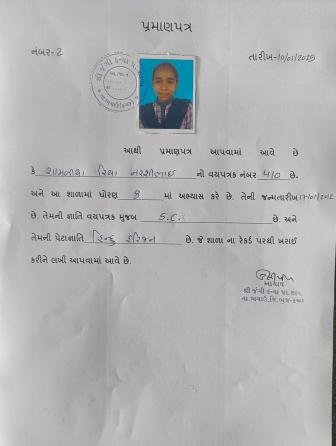 પ્રમાણપત્ર
નંબર-2
તારીખ-10/01/2025
આથી પ્રમાણપત્ર આપવામાં આવે છે
કે શામળીયા રિયા નરશીભાઇ નો વયપત્રક નંબર 410 છે.
અને આ શાળામાં ધોરણ 8 માં અભ્યાસ કરે છે. તેની જન્મતારીખ 17/01/2012
છે. તેમની જ્ઞાતિ વયપત્રક મુજબ S.C. છે. અને
તેમની પેટાજ્ઞાતિ હિન્દુ હરિજન છે. જે શાળા ના રેકર્ડ પરથી ખરાઈ
કરીને લખી આપવામાં આવે છે.
આચાર્ય
શ્રી જંગી કન્યા પ્રા.શાળા
તા.ભચાઉ.જિ.ભુજ-કચ્છ